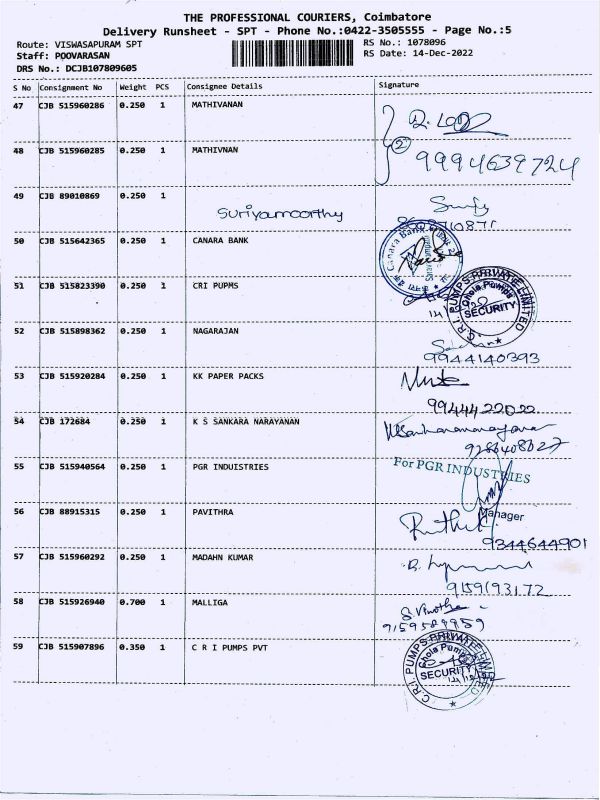 THE PROFESSIONAL COURIERS, Coimbatore
Delivery Runsheet - SPT - Phone No.:0422-3505555 - Page No.:5
Route: VISWASAPURAM SPT
RS No.: 1078096
Staff: POOVARASAN
RS Date: 14-Dec-2022
DRS No.: DCJB107809605
S No Consignment No Weight PCS Consignee Details Signature
47 CJB 515960286 0.250 1 MATHIVANAN
48 CJB 515960285 0.250 1 MATHIVNAN
2
9994639724
49 CJB 89010869 0.250 1
Suriyamoorthy
50 CJB 515642365 0.250 1 CANARA BANK
Canara Bank
51 CJB 515823390 0.250 1 CRI PUPMS
C.R.I. PUMPS PRIVATE LIMITED
Chola Pumps
SECURITY
52 CJB 515898362 0.250 1 NAGARAJAN
9944140393
53 CJB 515920284 0.250 1 KK PAPER PACKS
9944422022
54 CJB 172684 0.250 1 K S SANKARA NARAYANAN
9286408627
55 CJB 515940564 0.250 1 PGR INDUISTRIES
For PGR INDUSTRIES
Manager
56 CJB 88915315 0.250 1 PAVITHRA
9344644901
57 CJB 515960292 0.250 1 MADAHN KUMAR
9159193172
58 CJB 515926940 0.700 1 MALLIGA
S. Vinotha
9159589959
59 CJB 515907896 0.350 1 C R I PUMPS PVT
C.R.I. PUMPS PRIVATE LIMITED
Chola Pumps
SECURITY